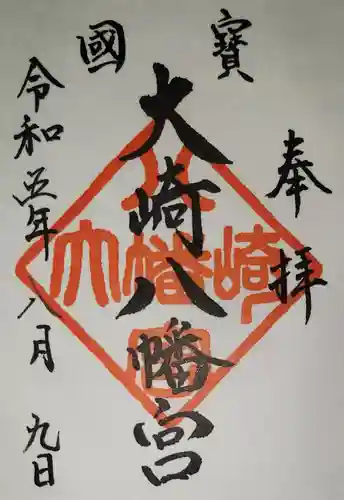 奉拝
國寶
大崎八幡宮
令和五年八月九日